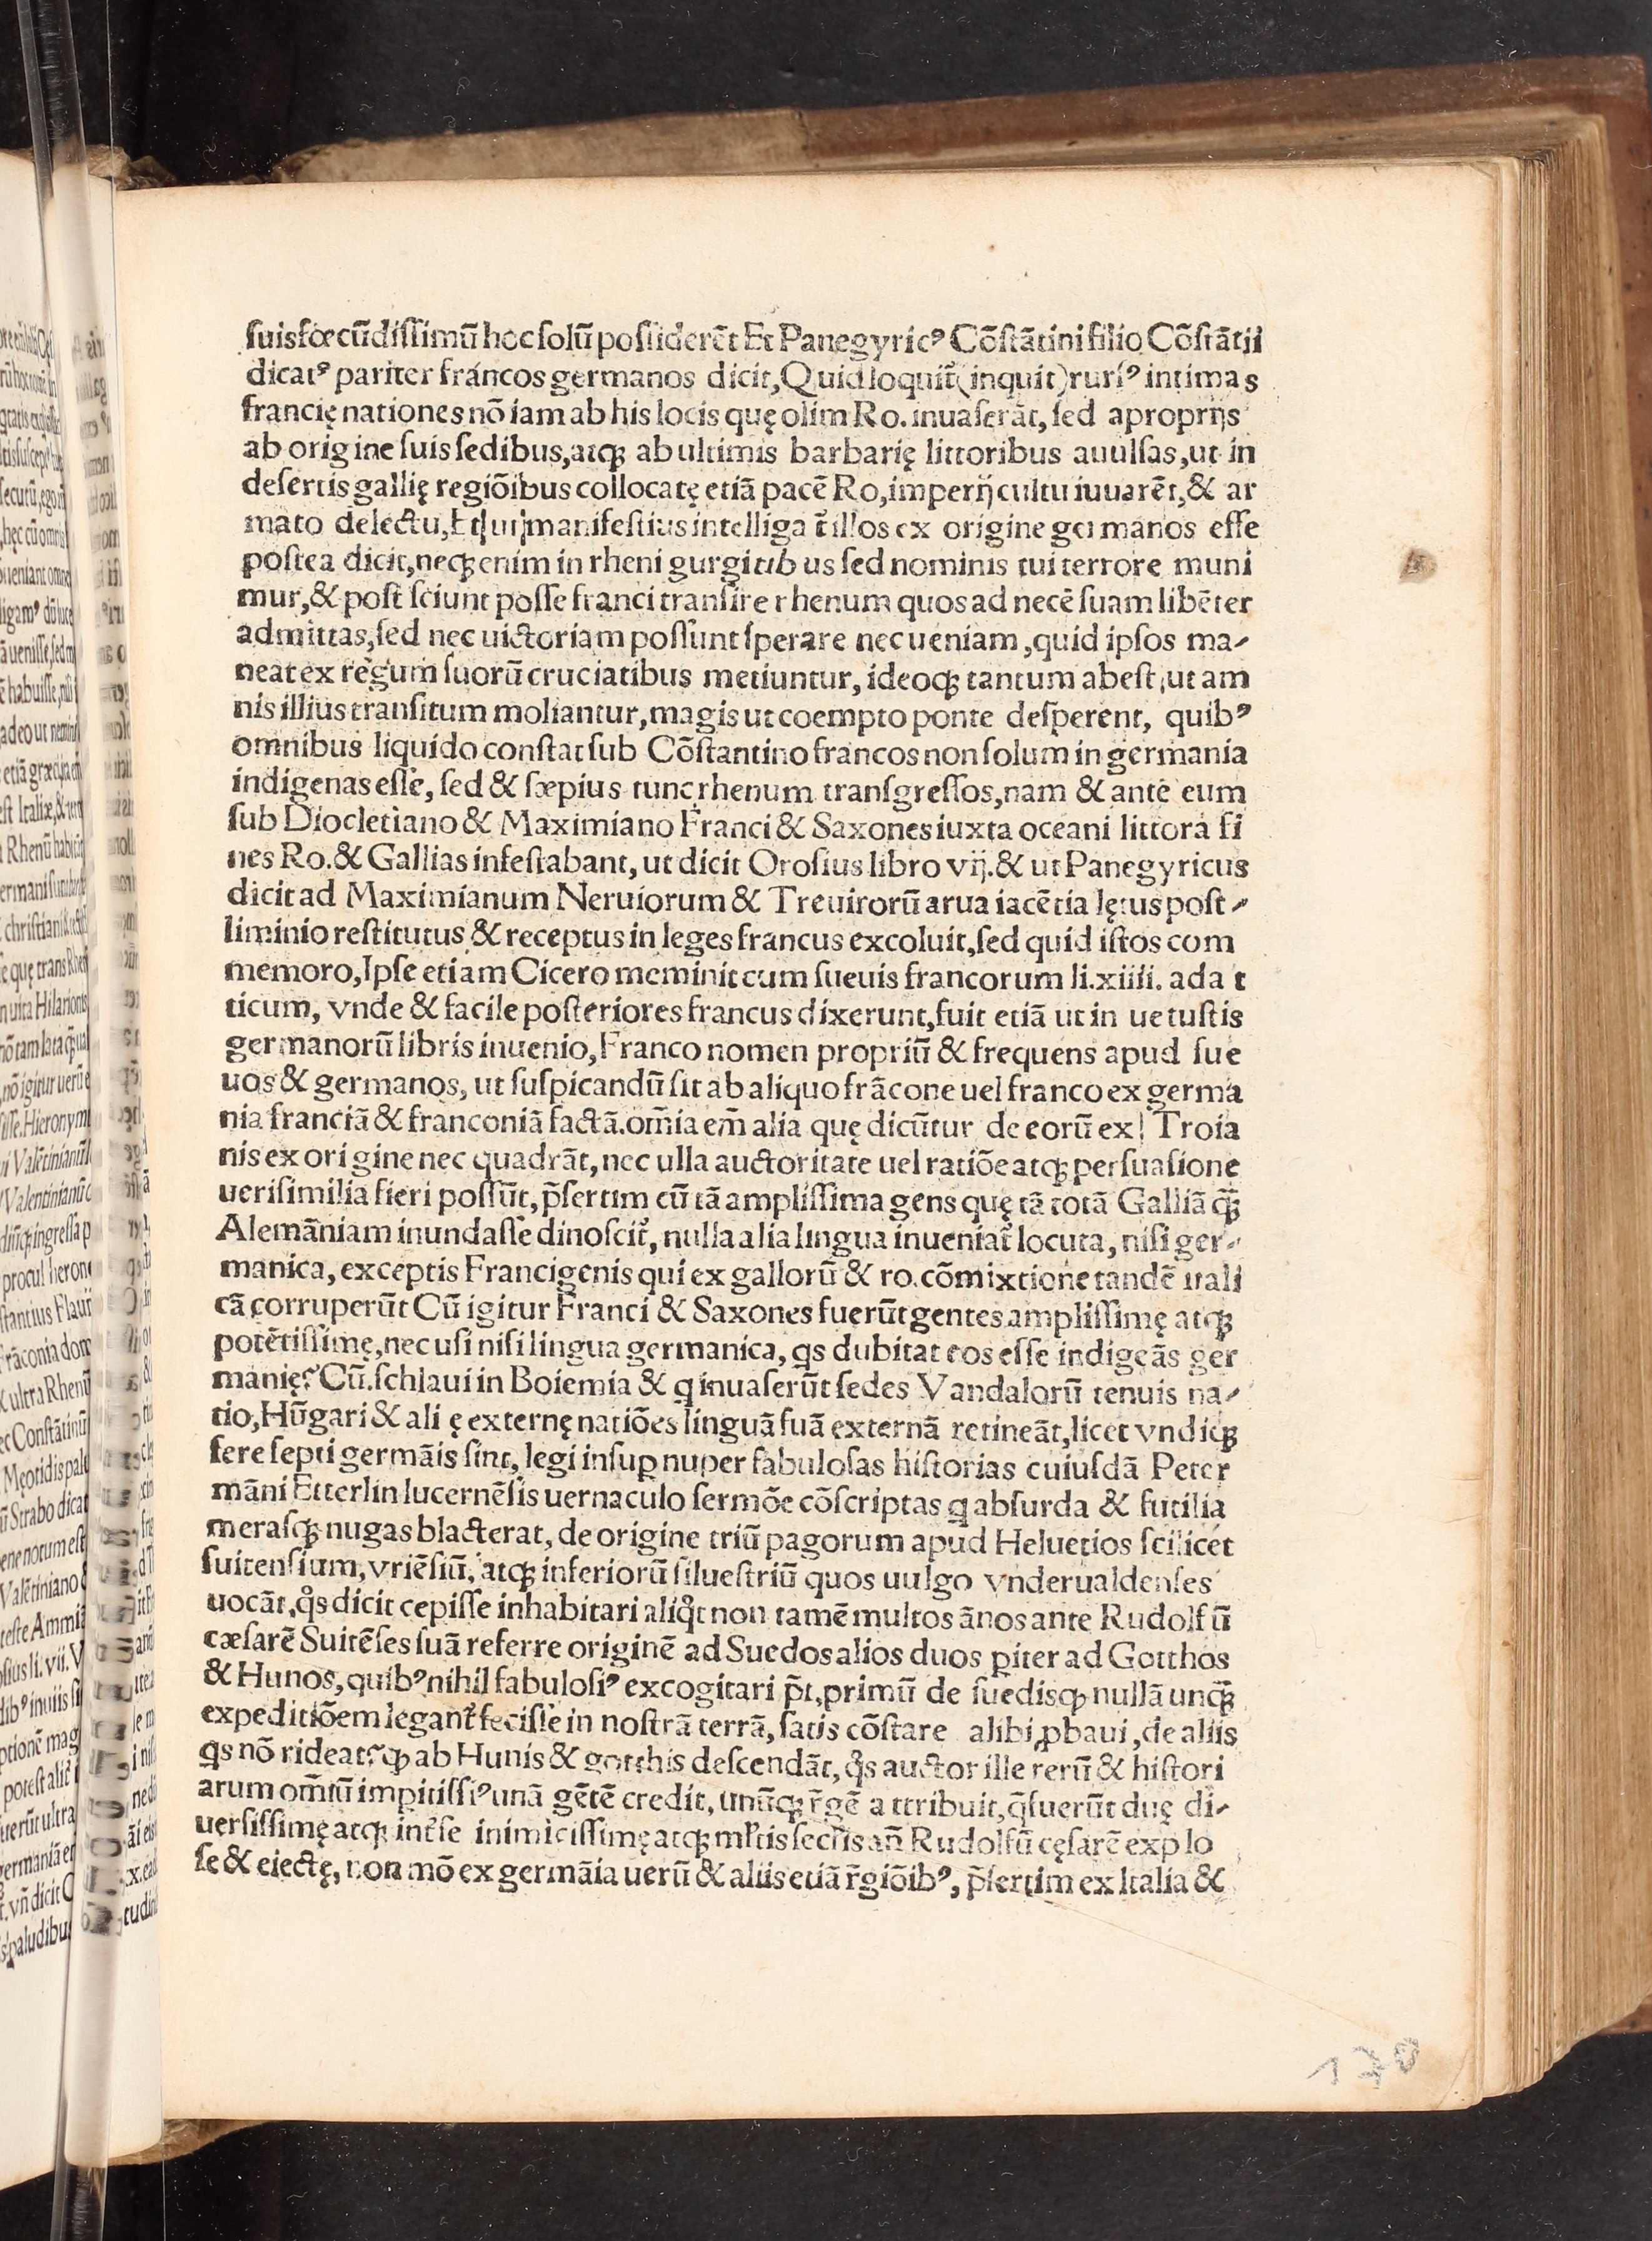 suis fœcūdissimū hoc solū possiderēt Et Panegyricꝰ Cōstātini filio Cōstātii
dicatꝰ pariter francos germanos dicit, Quid loquit̃ (inquit) rursꝰ intimas
francię nationes nō iam ab his locis quę olim Ro. inuaserāt, sed a proprijs
ab origine suis sedibus, atqꝫ ab ultimis barbarię littoribus auulsas, ut in
desertis gallię regiōibus collocatę etiā pacē Ro, imperij cultu iuuarēt, & ar
mato delectu, manifestius intelligat̃ illos ex origine germanos esse
postea dicit, neqꝫ enim in rheni gurgitibus sed nominis tui terrore muni
mur, & post sciunt posse franci transire rhenum quos ad necē suam libēter
admittas, sed nec uictoriam possunt sperare nec ueniam, quid ipsos ma-
neat ex regum suorū cruciatibus metiuntur, ideoqꝫ tantum abest, ut am
nis illius transitum moliantur, magis ut coempto ponte desperent, quibꝰ
omnibus liquido constat sub Cōstantino francos non solum in germania
indigenas esse, sed & sæpius tunc rhenum transgressos, nam & ante eum
sub Diocletiano & Maximiano Franci & Saxones iuxta oceani littora fi
nes Ro. & Gallias infestabant, ut dicit Orosius libro vij. & ut Panegyricus
dicit ad Maximianum Neruiorum & Treuirorū arua iacētia lętus post-
liminio restitutus & receptus in leges francus excoluit, sed quid istos com
memoro, Ipse etiam Cicero meminit cum sueuis francorum li. xiiii. ad at
ticum, vnde & facile posteriores francus dixerunt, fuit etiā ut in uetustis
germanorū libris inuenio, Franco nomen propriū & frequens apud sue
uos & germanos, ut suspicandū sit ab aliquo frācone uel franco ex germa
nia franciā & franconiā factā. om̄ia em̄ alia quę dicūtur de eorū ex Troia
nis ex origine nec quadrāt, nec ulla auctoritate uel ratiōe atqꝫ persuasione
uerisimilia fieri possūt, p̄sertim cū tā amplissima gens quę tā totā Galliā q̄ꝫ
Alemāniam inundasse dinoscit̃, nulla alia lingua inueniat̃ locuta, nisi ger-
manica, exceptis Francigenis qui ex gallorū & ro. cōmixtione tandē itali
cā corruperūt Cū igitur Franci & Saxones fuerūt gentes amplissimę atqꝫ
potētissimę, nec usi nisi lingua germanica, qs dubitat eos esse indigeās ger
manię? Cū schlaui in Boiemia & q inuaserūt sedes Vandalorū tenuis na-
tio, Hūgari & alię externę natiōes linguā suā externā retineāt, licet vndiqꝫ
fere septi germāis sint, legi insuꝑ nuper fabulosas historias cuiusdā Peter
māni Etterlin lucernēsis uernaculo sermōe cōscriptas q absurda & futilia
merasqꝫ nugas blacterat, de origine triū pagorum apud Heluetios scilicet
suitensium, vriēsiū, atqꝫ inferiorū siluestriū quos uulgo vnderualdenses
uocāt, qͦs dicit cepisse inhabitari aliqͦt non tamē multos ānos ante Rudolfū
cæsarē Suitēses suā referre originē ad Suedos alios duos ꝑiter ad Gotthos
& Hunos, quibꝰ nihil fabulosiꝰ excogitari p̄t, primū de suedis qꝫ nullā unq̄ꝫ
expeditiōem legant̃ fecisse in nostrā terrā, satis cōstare alibi ꝓbaui, de aliis
qs nō rideat? qꝫ ab Hunis & gotthis descendāt, qͦs auctor ille rerū & histori
arum om̄iū impitissiꝰ unā gētē credit, unūqꝫ r̄gē attribuit, q̄ fuerūt duę di-
uersissimę atqꝫ int̃se inimicissimę atqꝫ ml̃tis sec̃lis an̄ Rudolfū cęsarē explo
se & eiectę, non mō ex germāia uerū & aliis etiā r̄giōibꝰ, p̄sertim ex Italia &
170